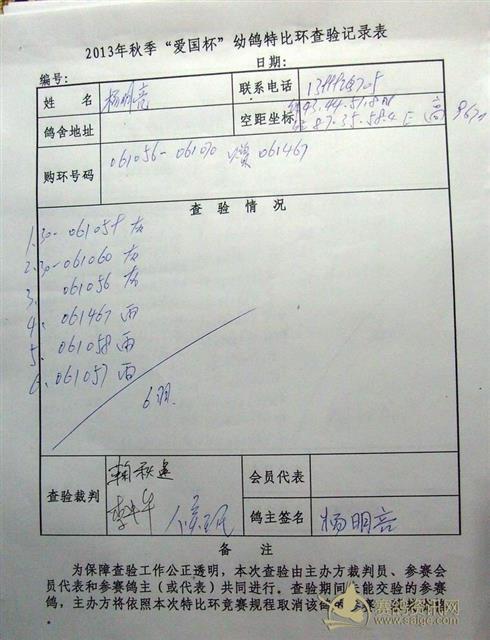 2013年秋季“爱国杯”幼鸽特比环查验记录表
编号： 日期：
姓 名 杨明亮 联系电话
鸽舍地址 空距坐标 43.44.51.8N
87.35.58.4E
购环号码 061056-061070 061467
查 验 情 况
1.30-061059 灰
2.30-061060 灰
3. 061056 灰
4. 061467 雨
5. 061058 雨
6. 061057 雨
6羽
查验裁判 会员代表
鸽主签名 杨明亮
备 注
为保障查验工作公正透明，本次查验由主办方裁判员、参赛会
员代表和参赛鸽主（或代表）共同进行。查验期间 能交验的参赛
鸽，主办方将依照本次特比环竞赛规程取消该
www.saige.com